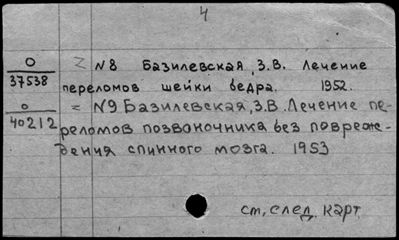 4
0
37538
= N8 Базилевская, З.В. Лечение
переломов шейки бедра. 1952.
0
40212
= N9 Базилевская, З.В. Лечение пе-
реломов позвоночника без повреж-
дения спинного мозга. 1953
см, след. карт